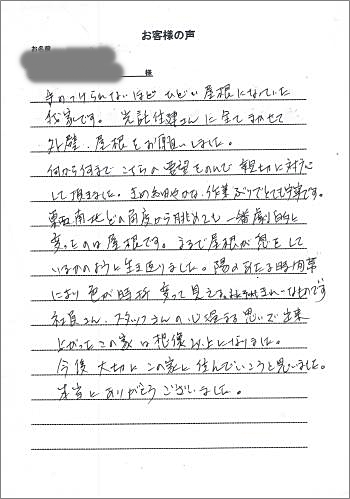 お客様の声
お名前
様
手のつけられないほど ひどい屋根になっていた
我家です。 さんに全てまかせて
外壁、屋根をお願いしました。
何から何まで こちらの要望をのんで 親切に対応
して頂きました。きめ細やかな作業ぶりでとても丁寧です。
東西南北どの角度から眺めても 一番劇的に
変ったのは屋根です。まるで屋根が息をして
いるかのように生き返りました。陽のあたる時間帯
により 色が時折 変って見える
社員さん、スタッフさんの 思いで 出来
上がったこの家は想像以上になりました。
今後 大切に この家に 住んでいこうと思いました。
本当に ありがとうございました。